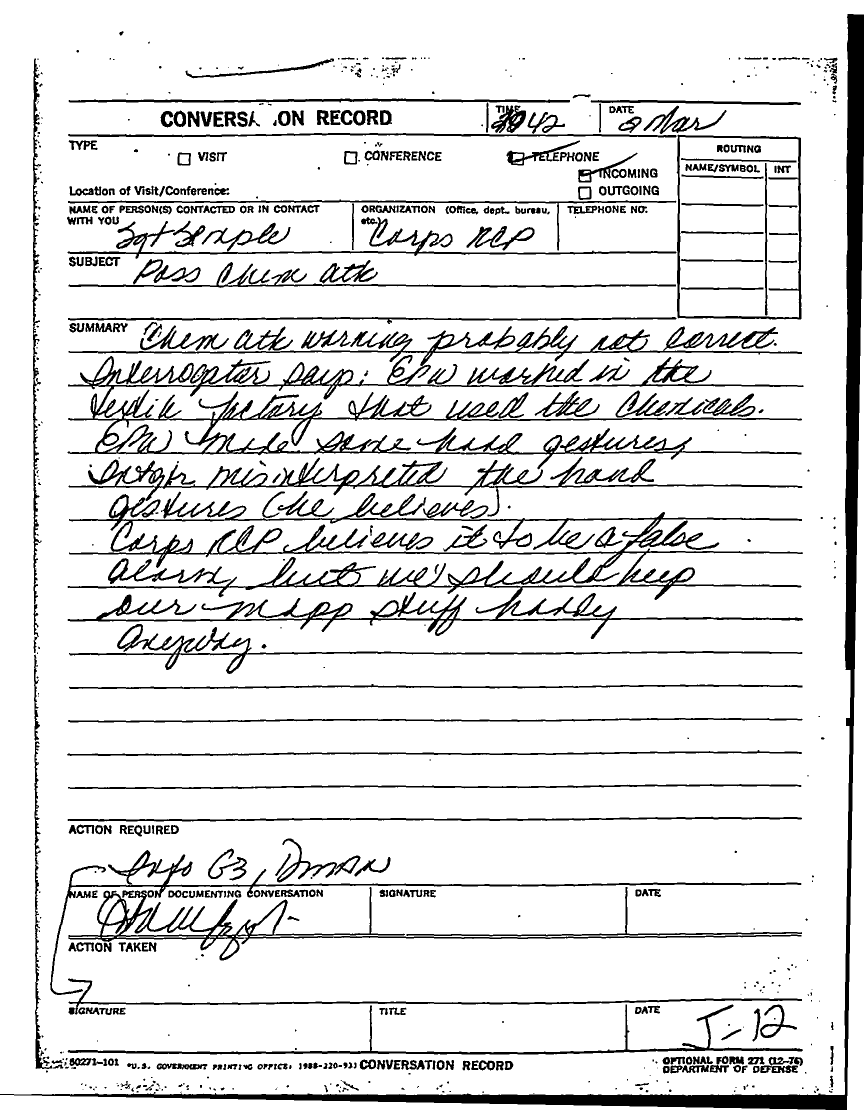 CONVERSA ION RECORD
TIME
1942
DATE
2 Mar
TYPE
VISIT
CONFERENCE
TELEPHONE
INCOMING
OUTGOING
ROUTING
NAME/SYMBOL INT
Location of Visit/Conference:
NAME OF PERSON(S) CONTACTED OR IN CONTACT
WITH YOU
Sgt Semple
ORGANIZATION (Office, dept., bureau,
etc.)
Corps RCP
TELEPHONE NO.
SUBJECT
Poss Chem atk
SUMMARY
Chem atk warning probably not correct.
Interrogator says: EPW worked in the
textile factory that used the chemicals.
EPW made some hand gestures,
misinterpreted the hand
gestures (he believes).
Corps RCP believes it to be a false
alarm, but we should keep
our mopp stuff handy
anyway.
ACTION REQUIRED
Info G3,
NAME OF PERSON DOCUMENTING CONVERSATION
SIGNATURE
DATE
ACTION TAKEN
SIGNATURE
TITLE
DATE
J-12
50271-101
*U.S. GOVERNMENT PRINTING OFFICE: 1988-220-933
CONVERSATION RECORD
OPTIONAL FORM 271 (12-76)
DEPARTMENT OF DEFENSE